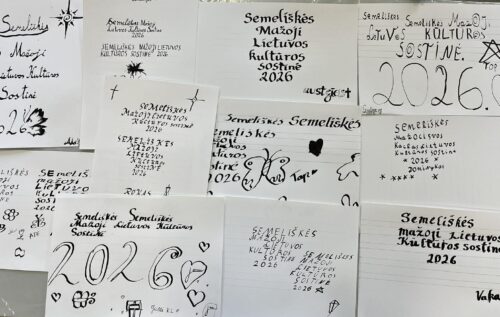 Semeliškės
Mažoji
Lietuvos Kultūros
Sostinė
2026
Semeliškės Mažoji
Lietuvos Kultūros Sostinė
2026
SEMELIŠKĖS MAŽOJI LIETUVOS
KULTŪROS SOSTINĖ 2026
Semeliškės
Mažoji
Lietuvos
kultūros
sostinė
2026
SEMELIŠKĖS
Semeliškės MAŽOJI
LIETUVOS KULTŪROS
SOSTINĖ.
TOP
2026.
SEMELIŠKĖS
MAŽOJI LIETUVOS
KULTŪROS SOSTINĖ
2026
SEMELIŠKĖS
MAŽOJI
LIETUVOS
KULTŪROS
SOSTINĖ
2026
ROKAS
Semeliškės Semeliškės
Semeliškės
Mažoji
Lietuvos
Kultūros
Sostinė
2026
Semeliškės
Mažoji
Lietuvos
Kultūros sostinė
* 2026 *
DOMINYKAS
Semeliškės Semeliškės
Mažoji Lietuvos Kultūros
Sostinė
2026
SEMELIŠKĖS
MAŽOJI
LIETUVOS
KULTŪROS
SOSTINĖ
2026
SEMELIŠKĖS
MAŽOJI
LIETUVOS
KULTŪROS
SOSTINĖ
2026
Semeliškės
mažoji Lietuvos
Kultūros sostinė
2026